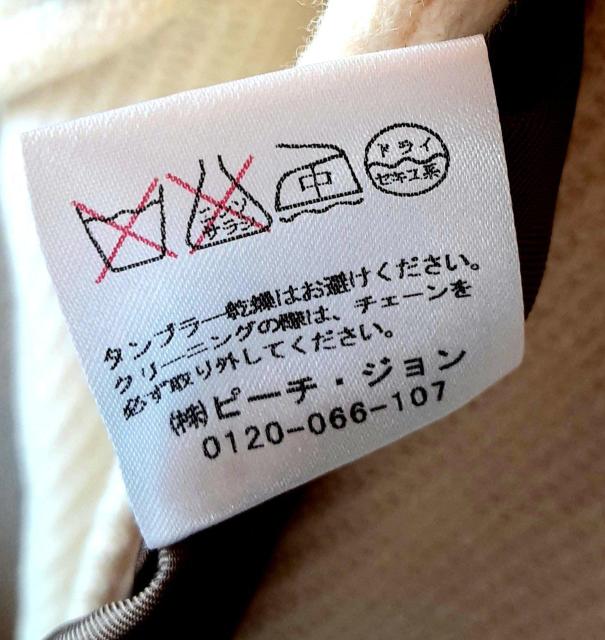 エンソ
サラシ
中
ドライ
セキユ系
タンブラー乾燥はお避けください。
クリーニングの際は、チェーンを
必ず取り外してください。
(株)ピーチ・ジョン
0120-066-107